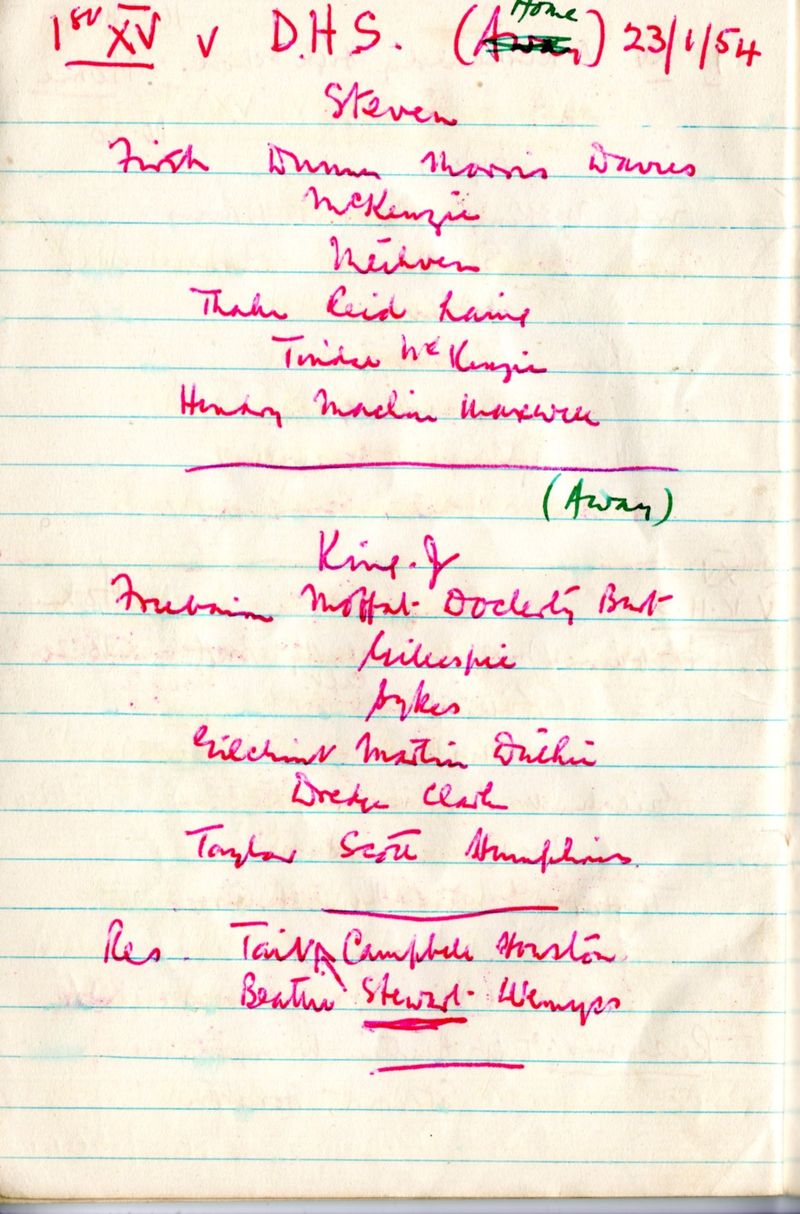 1st XV v D.H.S. (Away) Home 23/1/54
Steven
Firth Dunn Morris Davies
McKenzie
Methven
Reid Laing
McKenzie
Hendry Maxwell
(Away)
King. J
Freebairn Moffat Docherty Burt
Gillespie
Sykes
Gilchrist Martin Duthie
Dredge Clark
Taylor Scott Humphries
Res. Tait Campbell Houston
Beattie Stewart Wemyss